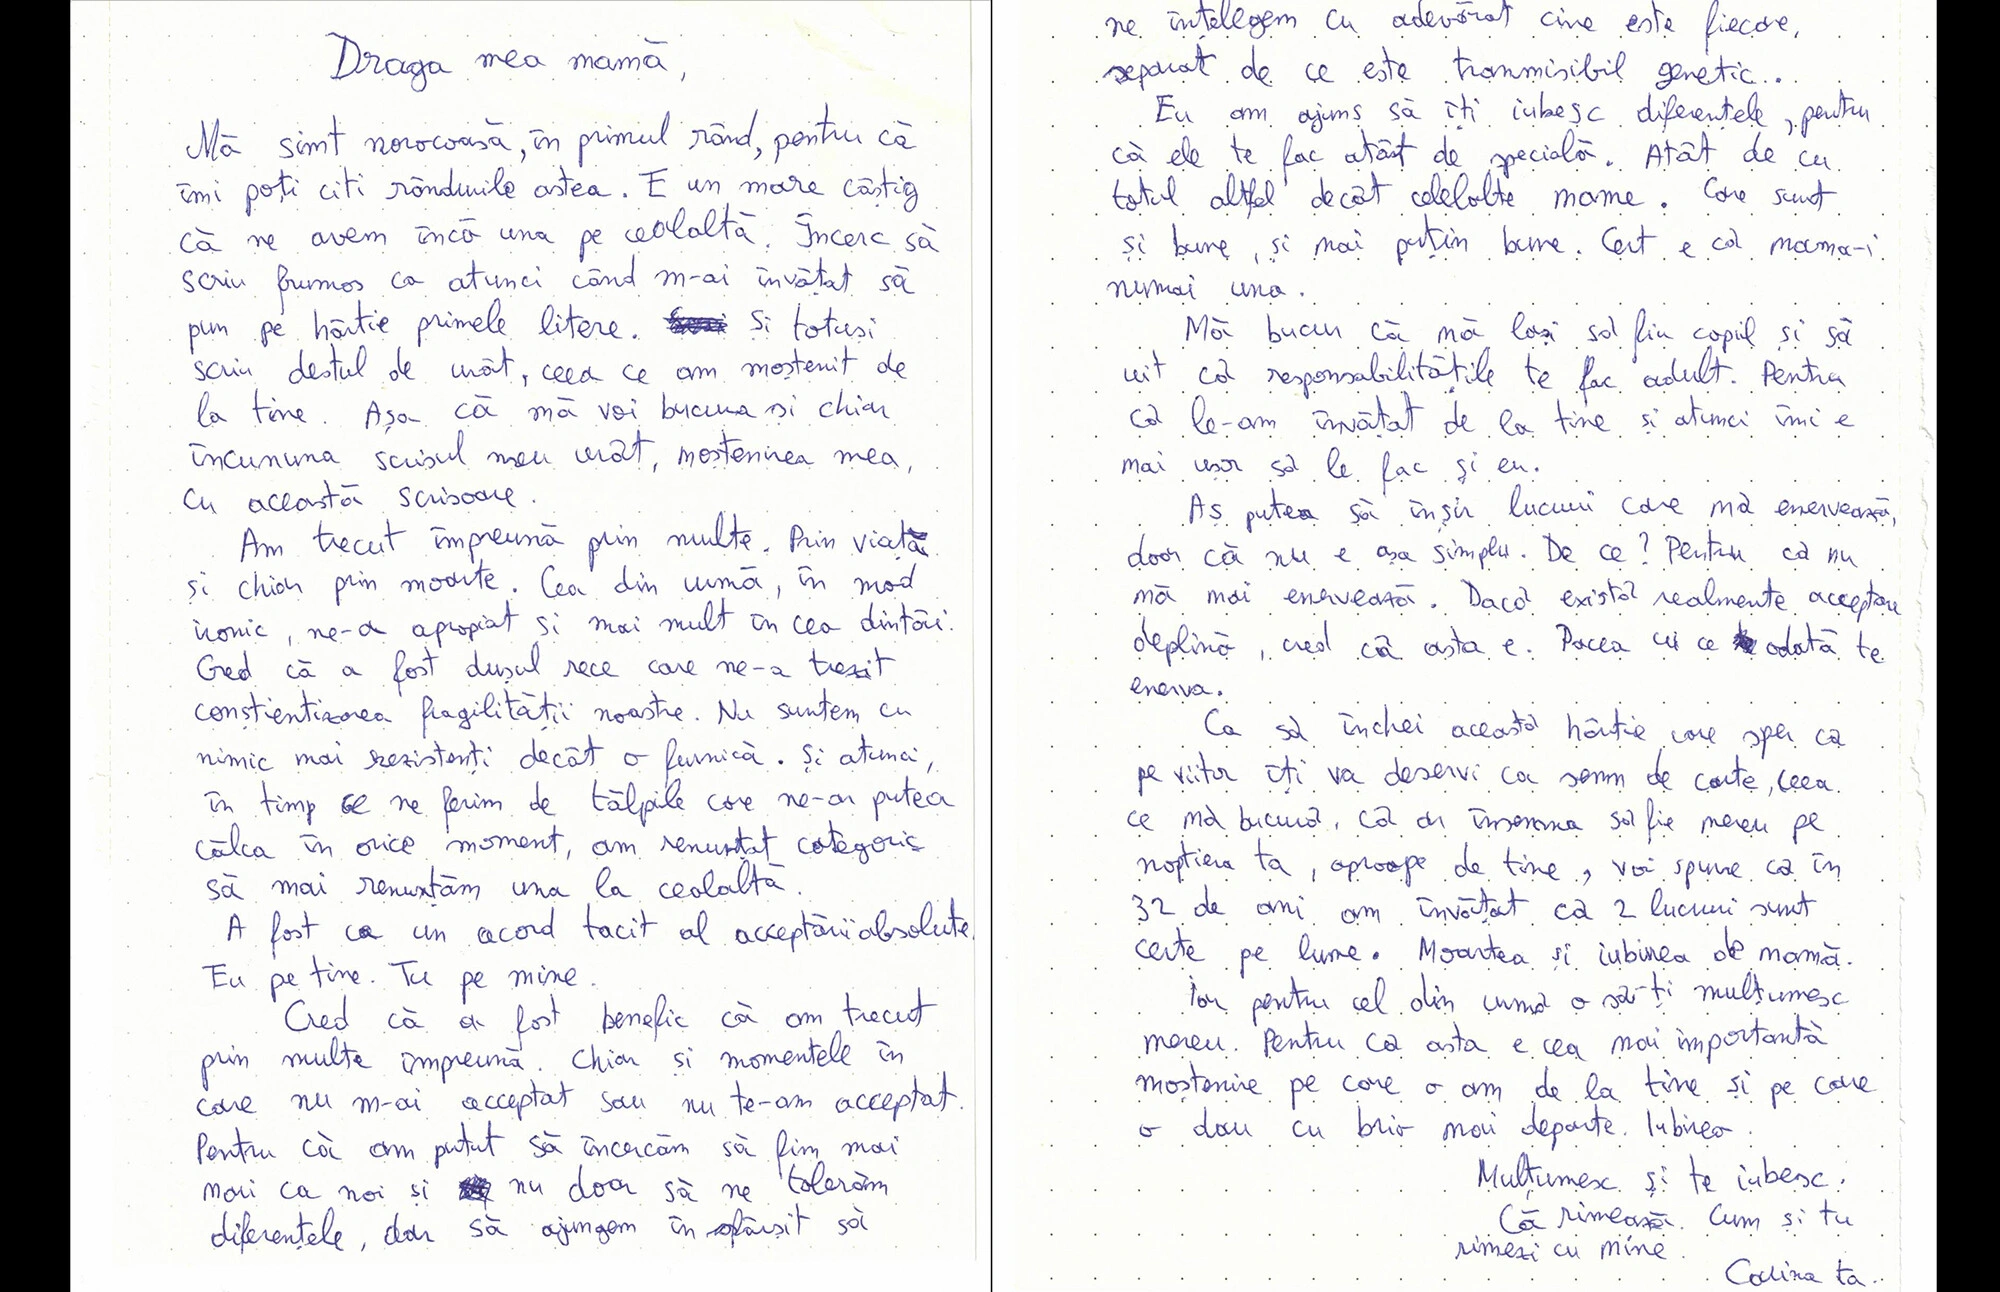 Draga mea mamă,
Mă simt norocoasă, în primul rând, pentru că
îmi poți citi rândurile astea. E un mare câștig
că ne avem încă una pe cealaltă. Încerc să
scriu frumos ca atunci când m-ai învățat să
pun pe hârtie primele litere. Și totuși
scriu destul de urât, ceea ce am moștenit de
la tine. Așa că mă voi bucura și chiar
încununa scrisul meu urât, moștenirea mea,
cu această scrisoare.
Am trecut împreună prin multe. Prin viață
și chiar prin moarte. Cea din urmă, în mod
ironic, ne-a apropiat și mai mult în cea dintâi.
Cred că a fost dușul rece care ne-a trezit
conștientizarea fragilității noastre. Nu suntem cu
nimic mai rezistenți decât o furnică. Și atunci,
în timp ce ne ferim de tălpile care ne-ar putea
călca în orice moment, am renunțat categoric
să mai renunțăm una la cealaltă.
A fost ca un acord tacit al acceptării absolute.
Eu pe tine. Tu pe mine.
Cred că a fost benefic că am trecut
prin multe împreună. Chiar și momentele în
care nu m-ai acceptat sau nu te-am acceptat.
Pentru că am putut să încercăm să fim mai
mari ca noi și nu doar să ne tolerăm
diferențele, dar să ajungem în sfârșit să
ne înțelegem cu adevărat cine este fiecare,
separat de ce este transmisibil genetic...
Eu am ajuns să îți iubesc diferențele, pentru
că ele te fac atât de specială. Atât de cu
totul altfel decât celelalte mame. Care sunt
și bune, și mai puțin bune. Cert e că mama-i
numai una.
Mă bucur că mă lași să fiu copil și să
uit că responsabilitățile te fac adult. Pentru
că le-am învățat de la tine și atunci îmi e
mai ușor să le fac și eu.
Aș putea să înșir lucruri care mă enervează,
doar că nu e așa simplu. De ce? Pentru că nu
mă mai enervează. Dacă există realmente acceptare
deplină, cred că asta e. Pacea cu ce odată te
enerva.
Ca să închei această hârtie care sper că
pe viitor îți va deservi ca semn de carte, ceea
ce mă bucură, că ar însemna să fie mereu pe
noptiera ta, aproape de tine, voi spune că în
32 de ani am învățat că 2 lucruri sunt
certe pe lume. Moartea și iubirea de mamă.
Iar pentru cel din urmă o să-ți mulțumesc
mereu. Pentru că asta e cea mai importantă
moștenire pe care o am de la tine și pe care
o dau cu brio mai departe. Iubirea.
Mulțumesc și te iubesc.
Că rimează. Cum și tu
rimezi cu mine.
Codina ta.